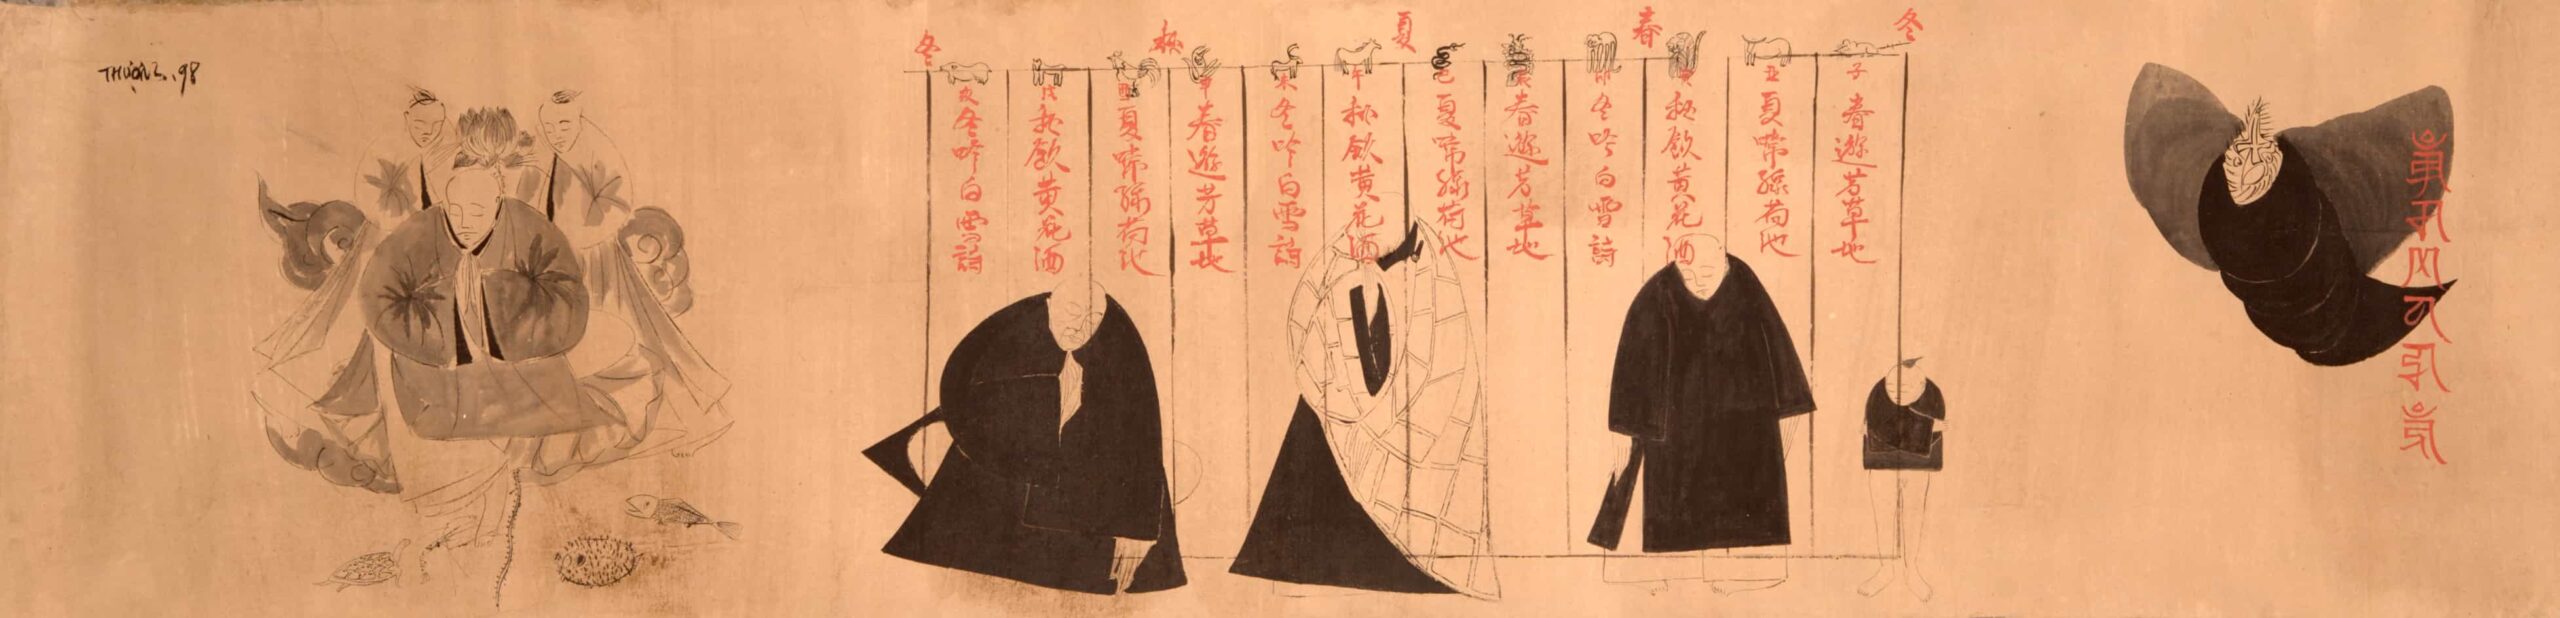 冬
春
夏
秋
冬
子春遊芳草地
丑夏賞綠荷池
寅秋飲黄花酒
卯冬吟白雪詩
辰春遊芳草地
巳夏賞綠荷池
午秋飲黄花酒
未冬吟白雪詩
申春遊芳草地
酉夏賞綠荷池
戌秋飲黄花酒
亥冬吟白雪詩
THƯỢNG.98